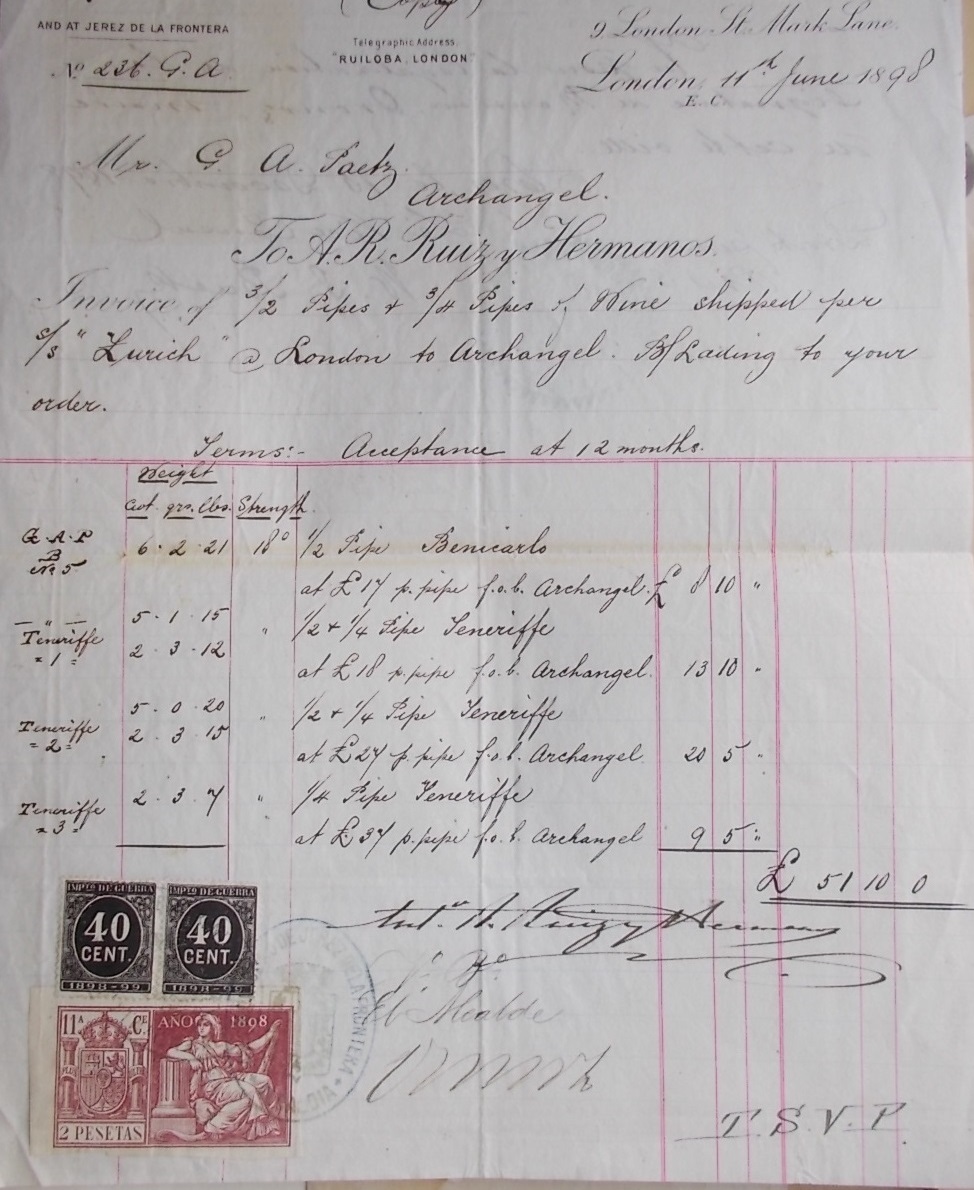 (Copy)
AND AT JEREZ DE LA FRONTERA
Telegraphic Address,
"RUILOBA, LONDON"
9 London St. Mark Lane.
No 236. G. A.
London, 11th June 1898
E. C.
Mr. G. A. Paetz.
Archangel.
To A. R. Ruiz y Hermanos.
Invoice of 3/2 Pipes & 3/4 Pipes of Wine shipped per
s/s "Zurich" @ London to Archangel. B/Lading to your
order.
Terms:- Acceptance at 12 months.
Weight
Cwt. qrs. lbs. Strength.
G.A.P
B
No 5 6 . 2 . 21 18° 1/2 Pipe Benicarlo
at £17 p. pipe f.o.b. Archangel. £ 8 10 "
— " —
Teneriffe
" 1 " 5 . 1 . 15 " 1/2 + 1/4 Pipe Teneriffe
2 . 3 . 12
at £18 p. pipe f.o.b. Archangel. 13 10 "
Teneriffe
" 2 " 5 . 0 . 20 " 1/2 + 1/4 Pipe Teneriffe
2 . 3 . 15
at £27 p. pipe f.o.b. Archangel 20 5 "
Teneriffe
" 3 " 2 . 3 . 7 " 1/4 Pipe Teneriffe
at £37 p. pipe f.o.b. Archangel 9 5 "
£ 51 10 0
Ruiz y Hermanos
El Alcalde
IMPTO DE GUERRA
40
CENT.
1898-99
IMPTO DE GUERRA
40
CENT.
1898-99
11A CE
AÑO 1898
2 PESETAS
T. S. V. P.